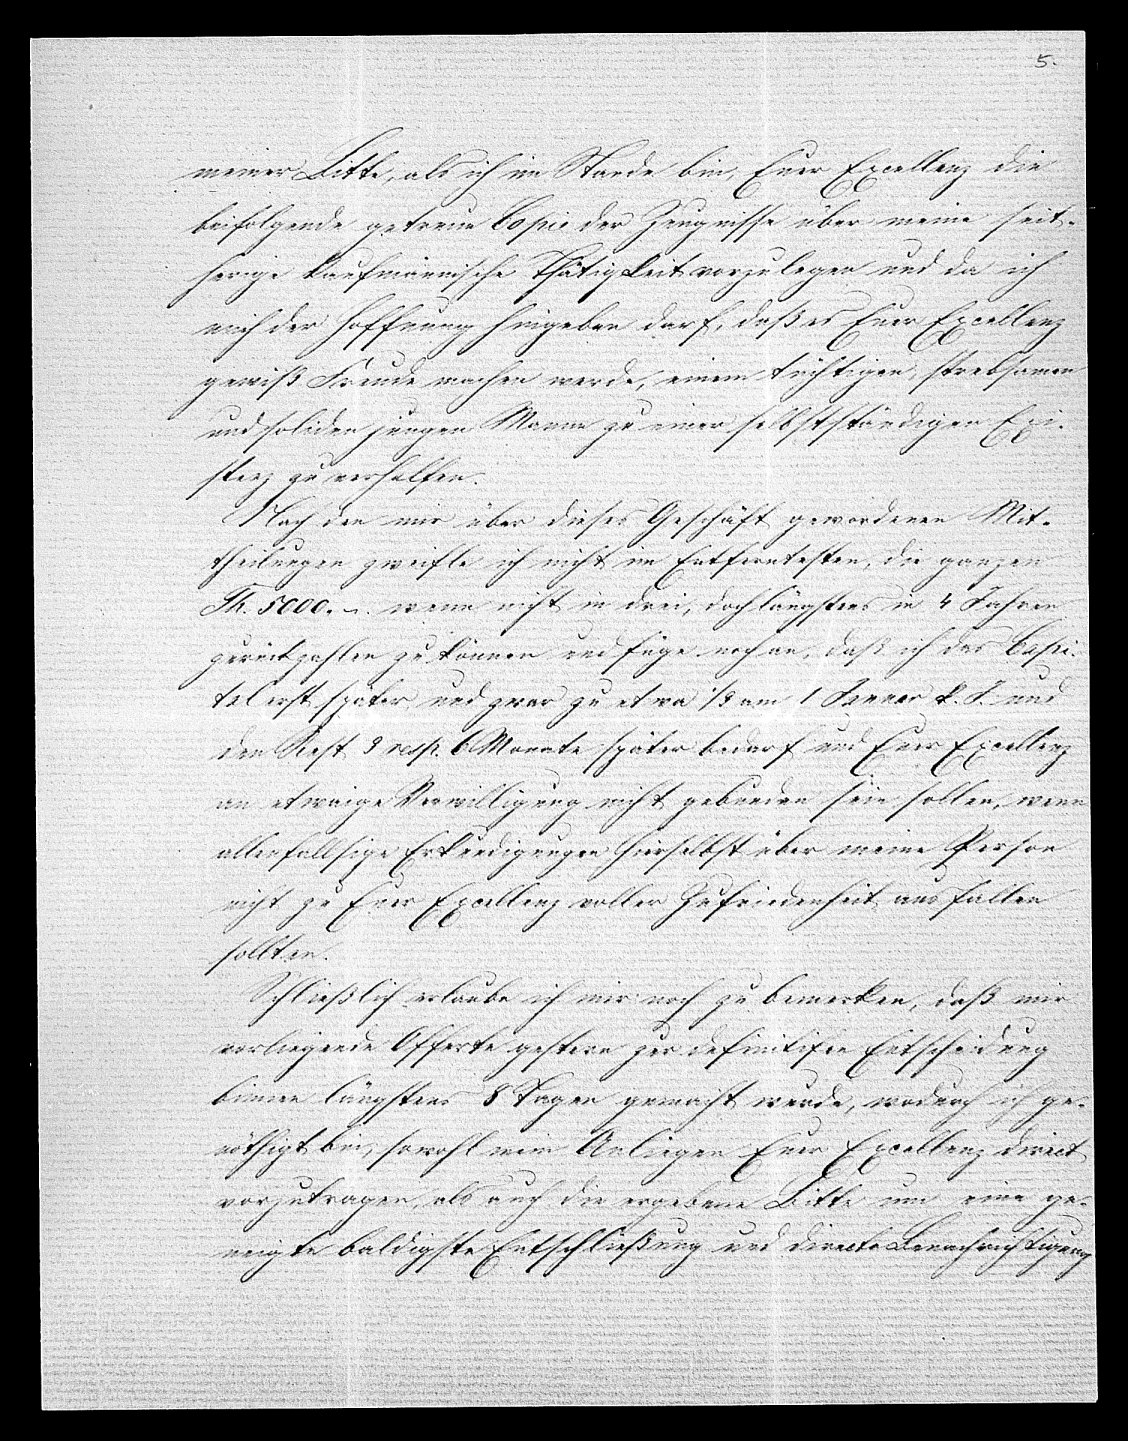 5.
meiner Bitte, als ich im Stande bin, Euer Excellenz die
beifolgende getreue Copie der Zeugnisse über meine seit-
herige kaufmännische Thätigkeit vorzulegen und da ich
mich der Hoffnung hingeben darf, daß es Euer Excellenz
gewiß Freude machen werde, einem tüchtigen, strebsamen
und soliden jungen Manne zu einer selbstständigen Exi-
stenz zu verhelfen.
Nach den mir über dieses Geschäft gewordenen Mit-
theilungen zweifle ich nicht im Entferntesten, die ganzen
Th. 5000. –. wenn nicht in drei, doch längstens in 4 Jahren
zurückzahlen zu können und füge noch an, daß ich das Capi-
tal erst später und zwar zu etwa 1/3 am 1 Jenner k. J. und
den Rest 3 resp. 6 Monate später bedarf und Euer Excellenz
an etwaige Verwilligung nicht gebunden sein sollen, wenn
allenfallsige Erkundigungen hierselbst über meine Person
nicht zu Euer Excellenz voller Zufriedenheit ausfallen
sollten.
Schließlich erlaube ich mir noch zu bemerken, daß mir
vorliegende Offerte gestern zur definitifen Entscheidung
binnen längstens 8 Tagen gemacht wurde, wodurch ich ge-
nöthigt bin, sowohl mein Anliegen Euer Excellenz direct
vorzutragen, als auch die ergebene Bitte um eine ge-
neigte baldigste Entschließung und directe Benachrichtigung